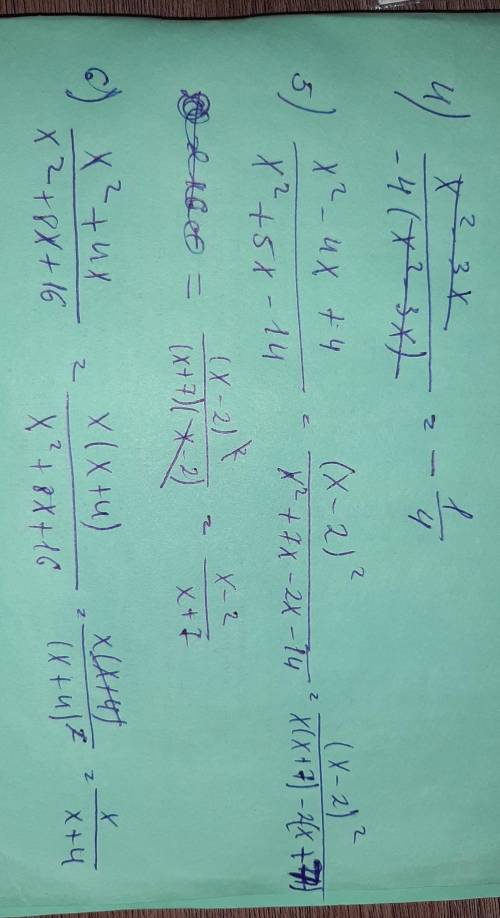 4) (x² - 3x)/(-4(x² - 3x)) = -1/4
5) (x² - 4x + 4)/(x² + 5x - 14) = (x - 2)²/(x² + 7x - 2x - 14) = (x - 2)²/(x(x + 7) - 2(x + 7))
= (x - 2)²/((x + 7)(x - 2)) = (x - 2)/(x + 7)
6) (x² + 4x)/(x² + 8x + 16) = x(x + 4)/(x² + 8x + 16) = x(x + 4)/(x + 4)² = x/(x + 4)